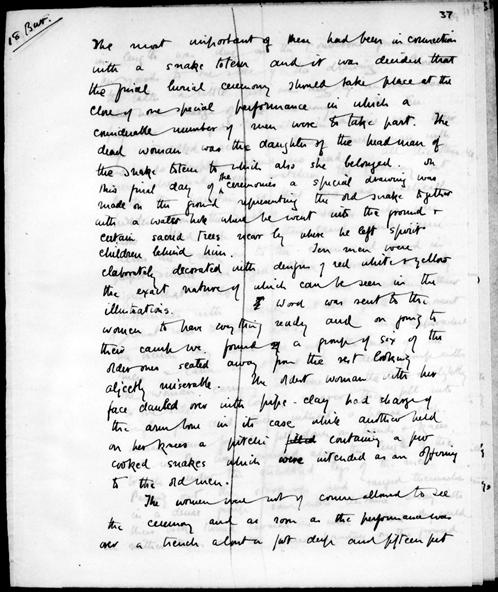 18 But.
37
The most important of them had been in connection
with a snake totem and it was decided that
the final burial ceremony should take place at the
close of one special performance in which a
considerable number of men were to take part. The
dead woman was the daughter of the headman of
the snake totem to which also she belonged. On
this final day of the ceremonies a special drawing was
made on the ground representing the old snake together
with a water hole where he went into the ground &
certain sacred trees near by where he left spirit
children behind him. Ten men were
elaborately decorated with designs of red white & yellow
the exact nature of which can be seen in the
illustrations. Word was sent to the
women to have everything ready and on going to
their camp we found a group of six of the
older ones seated away from the rest looking
abjectly miserable. The oldest woman with her
face daubed over with pipe-clay had charge of
the arm bone in its case while another held
on her knees a pitchi filled containing a few
cooked snakes which were intended as an offering
to the old men.
The women were not of course allowed to see
the ceremony and as soon as the performance was
over a trench about a foot deep and fifteen feet